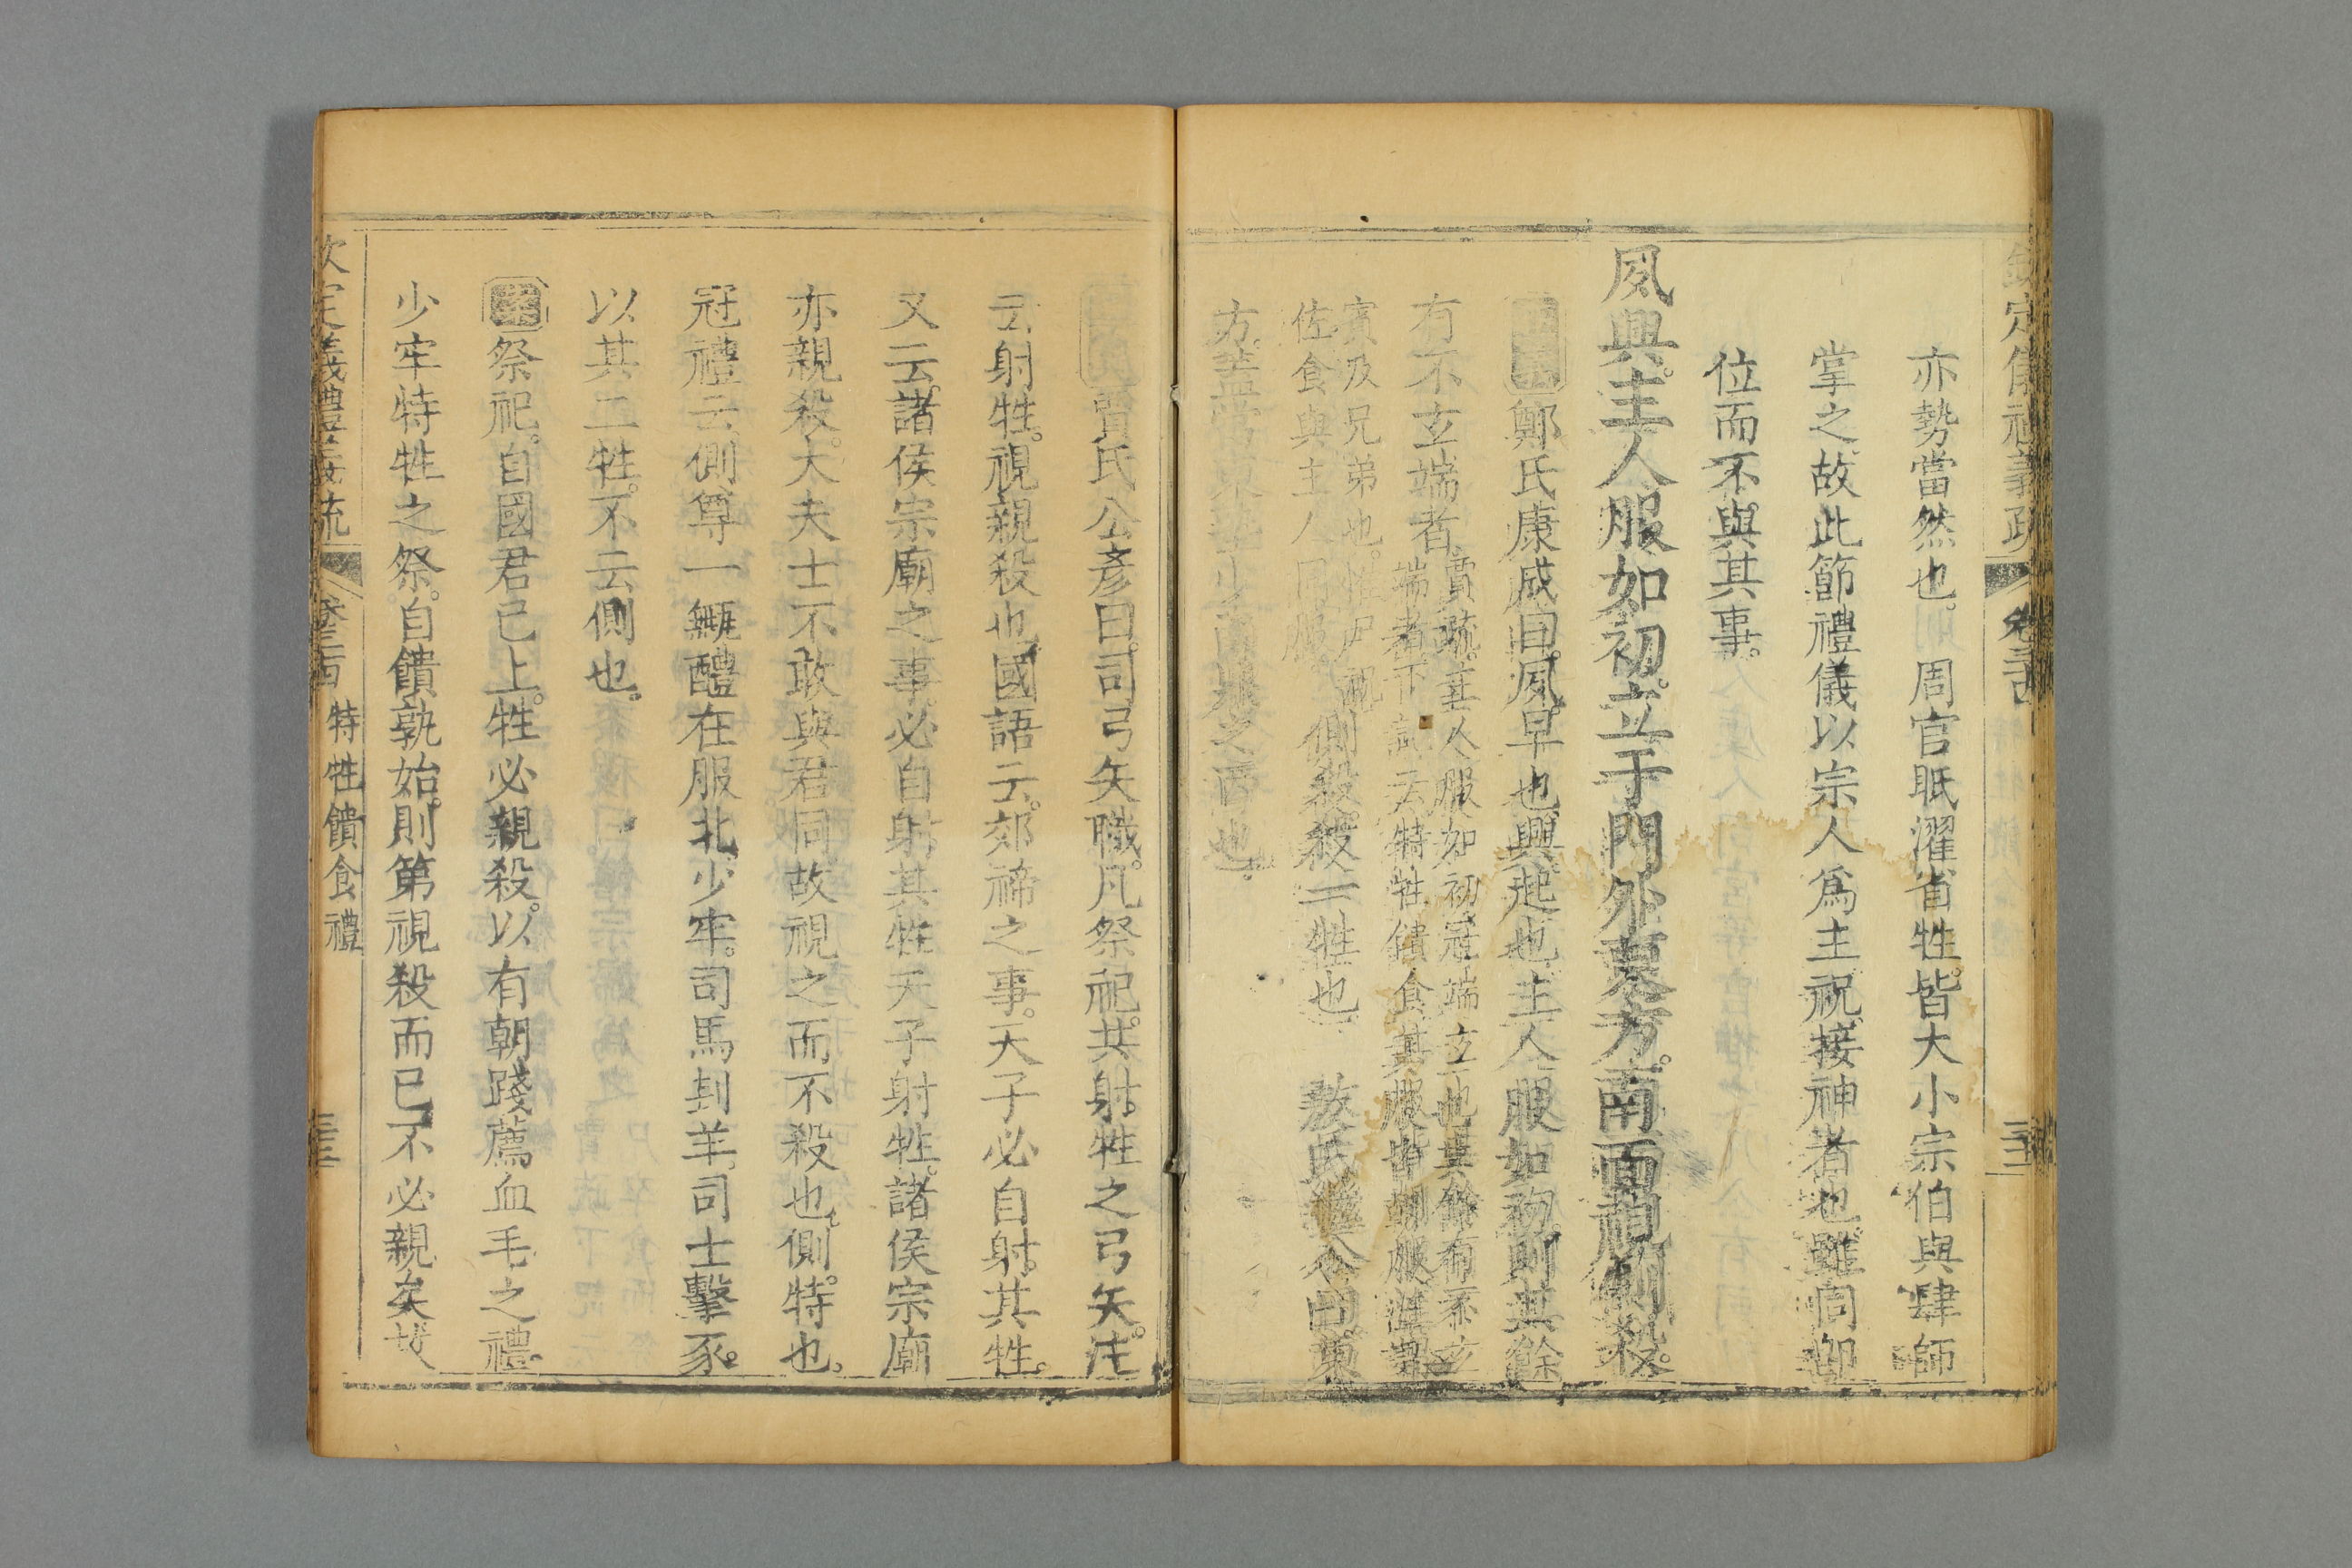 亦勢當然也 周官眡濯省牲皆大小宗伯與肆師
掌之故此節禮儀以宗人爲主祝接神者也雖同卽
位而不與其事
夙興主人服如初立于門外東方南面視側殺
鄭氏康成曰夙早也興起也主人服如初則其餘
有不玄端者
賈疏主人服如初冠端玄也其餘有不玄
端者下記云特牲饋食其服皆朝服謂
賓及兄弟也惟尸祝
佐食與主人同服
側殺殺一牲也 敖氏繼公曰東
方蓋當東塾少南視之西也
賈氏公彥曰司弓矢職凡祭祀共射牲之弓矢注
云射牲視親殺也國語云郊禘之事天子必自射其牲
又云諸侯宗廟之事必自射其牲天子射牲諸侯宗廟
亦親殺大夫士不敢與君同故視之而不殺也側特也
冠禮云側尊一甒醴在服北少牢司馬刲羊司士擊豕
以其二牲不云側也
祭祀自國君已上牲必親殺以有朝踐薦血毛之禮
少牢特牲之祭自饋孰始則第視殺而已不必親矣
欽定儀禮義疏 卷三十四 特牲饋食禮 三十三